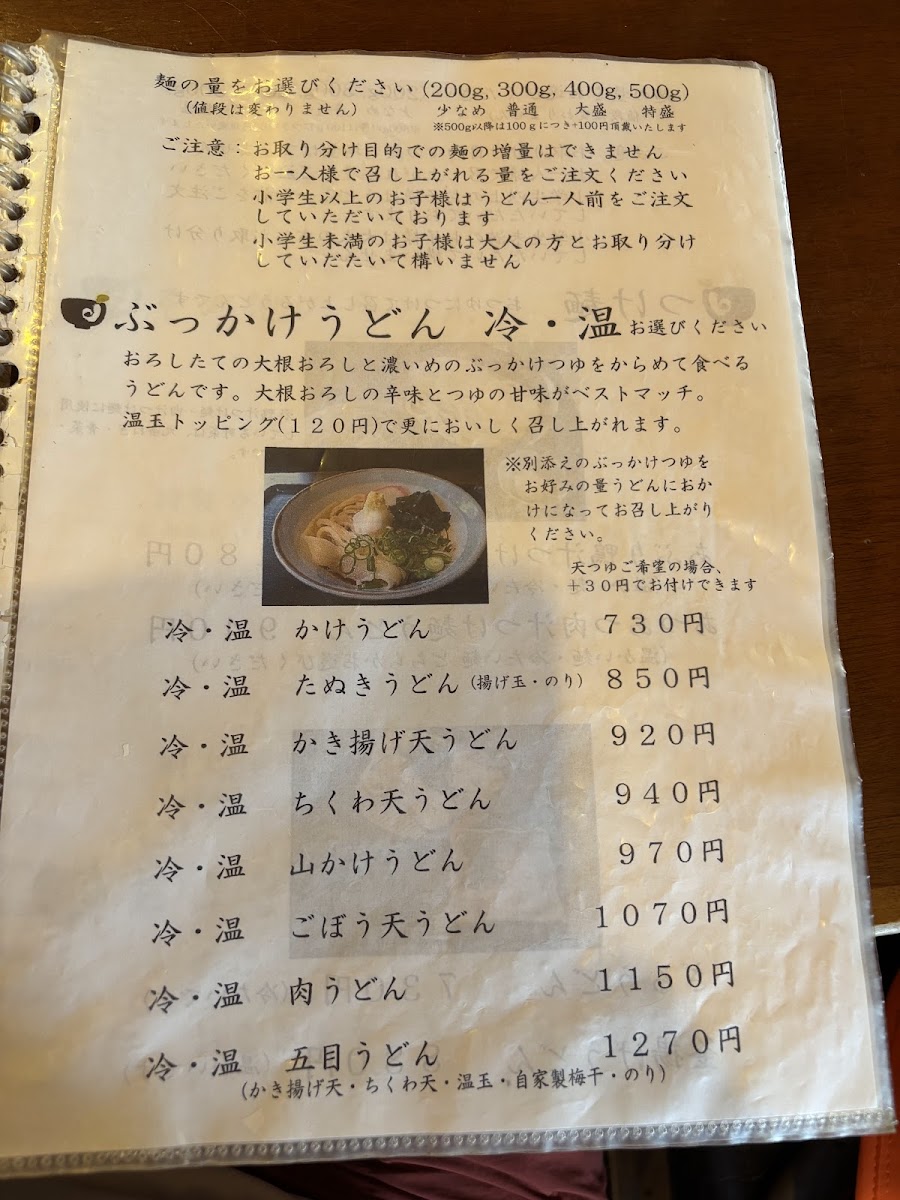 麺の量をお選びください (200g, 300g, 400g, 500g)
(値段は変わりません) 少なめ 普通 大盛 特盛
※500g以降は100gにつき+100円頂戴いたします
ご注意：お取り分け目的での麺の増量はできません
お一人様で召し上がれる量をご注文ください
小学生以上のお子様はうどん一人前をご注文
していただいております
小学生未満のお子様は大人の方とお取り分け
していだたいて構いません
ぶっかけうどん 冷・温 お選びください
おろしたての大根おろしと濃いめのぶっかけつゆをからめて食べる
うどんです。大根おろしの辛味とつゆの甘味がベストマッチ。
温玉トッピング(１２０円)で更においしく召し上がれます。
※別添えのぶっかけつゆを
お好みの量うどんにおか
けになってお召し上がり
ください。
天つゆご希望の場合、
＋３０円でお付けできます
冷・温 かけうどん ７３０円
冷・温 たぬきうどん (揚げ玉・のり) ８５０円
冷・温 かき揚げ天うどん ９２０円
冷・温 ちくわ天うどん ９４０円
冷・温 山かけうどん ９７０円
冷・温 ごぼう天うどん １０７０円
冷・温 肉うどん １１５０円
冷・温 五目うどん １２７０円
(かき揚げ天・ちくわ天・温玉・自家製梅干・のり)